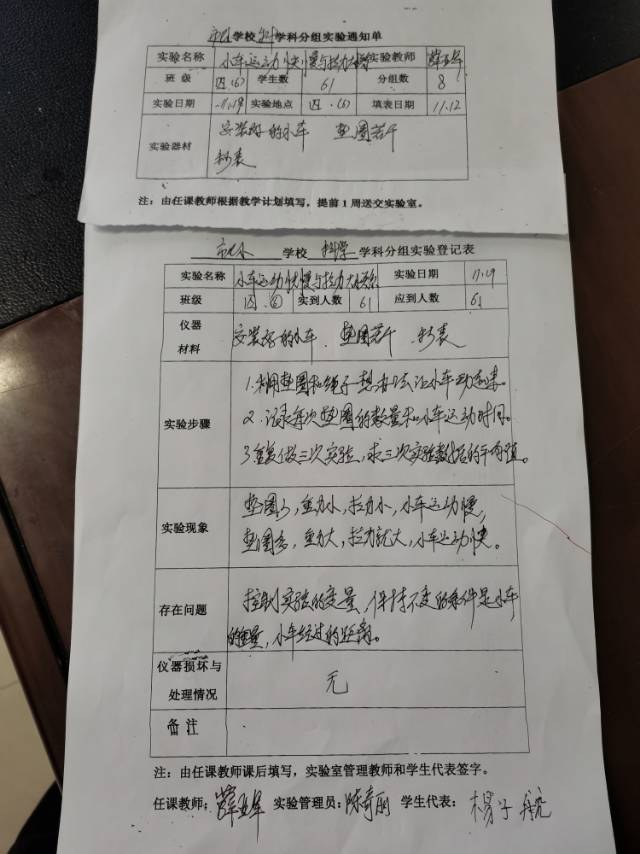 学校 科 学科分组实验通知单
实验名称 小车运动快慢与拉力大小 实验教师 薛
班级 四.(6) 学生数 61 分组数 8
实验日期 11.19 实验地点 四.(6) 填表日期 11.12
实验器材 安装好的小车 垫圈若干
秒表
注：由任课教师根据教学计划填写，提前1周送交实验室。
学校 科学 学科分组实验登记表
实验名称 小车运动快慢与拉力大小 实验日期 11.19
班级 四.⑥ 实到人数 61 应到人数 61
仪器材料 安装好的小车. 垫圈若干 .秒表
实验步骤 1.利用垫圈和绳子想办法让小车动起来。
2.记录每次垫圈的数量和小车运动时间。
3.重复做三次实验,求三次实验数据的平均值。
实验现象 垫圈少,重力小,拉力小,小车运动慢,
垫圈多,重力大,拉力就大,小车运动快。
存在问题 控制实验的变量,保持不变的条件是小车
的重量,小车经过的距离。
仪器损坏与处理情况 无
备注
注：由任课教师课后填写，实验室管理教师和学生代表签字。
任课教师：薛 实验管理员：陈奇丽 学生代表：杨子航